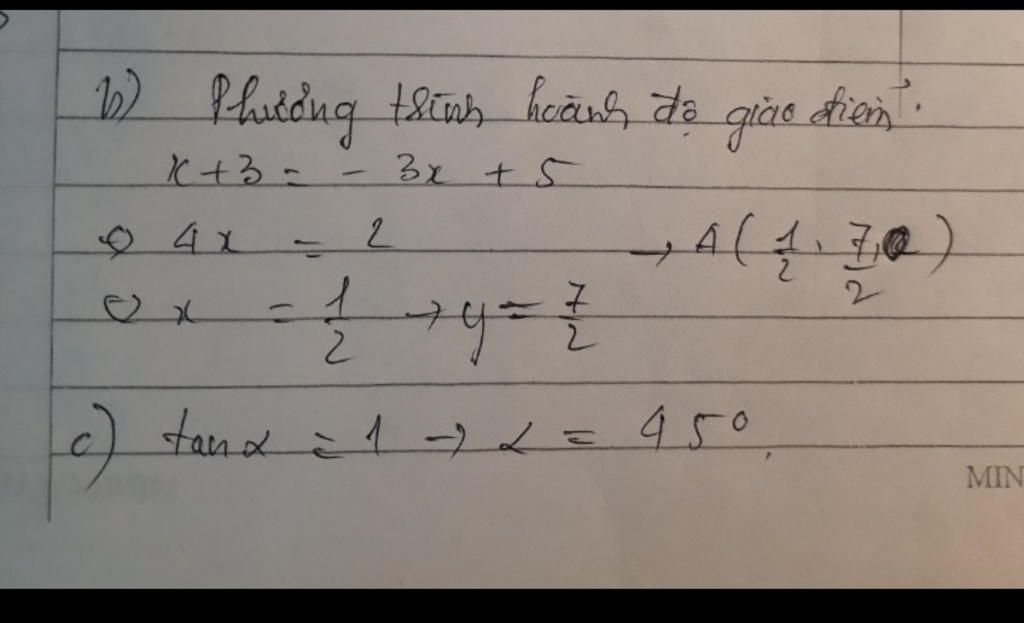 b) Phương trình hoành độ giao điểm.
x + 3 = - 3x + 5
⇔ 4x = 2 → A ( 1/2 , 7/2 )
⇔ x = 1/2 → y = 7/2
c) tan α = 1 → α = 45°.
MIN